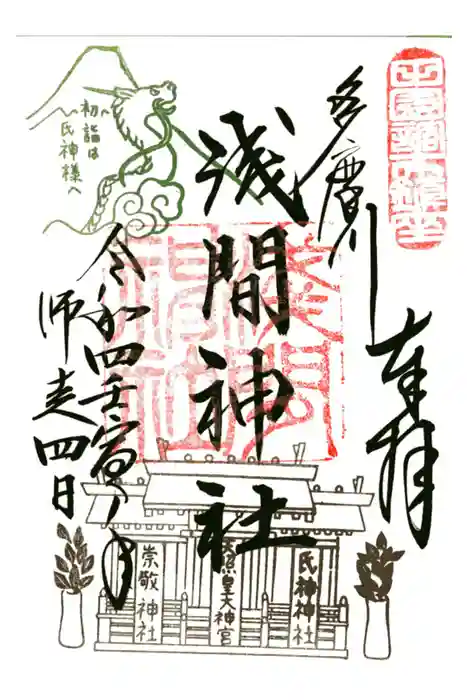 田園調布鎮座
多摩川
奉拝
浅間神社
淺間神社
令和四壬寅ノ年
師走四日
初詣は
氏神様へ
氏神神社
天照皇大神宮
崇敬神社